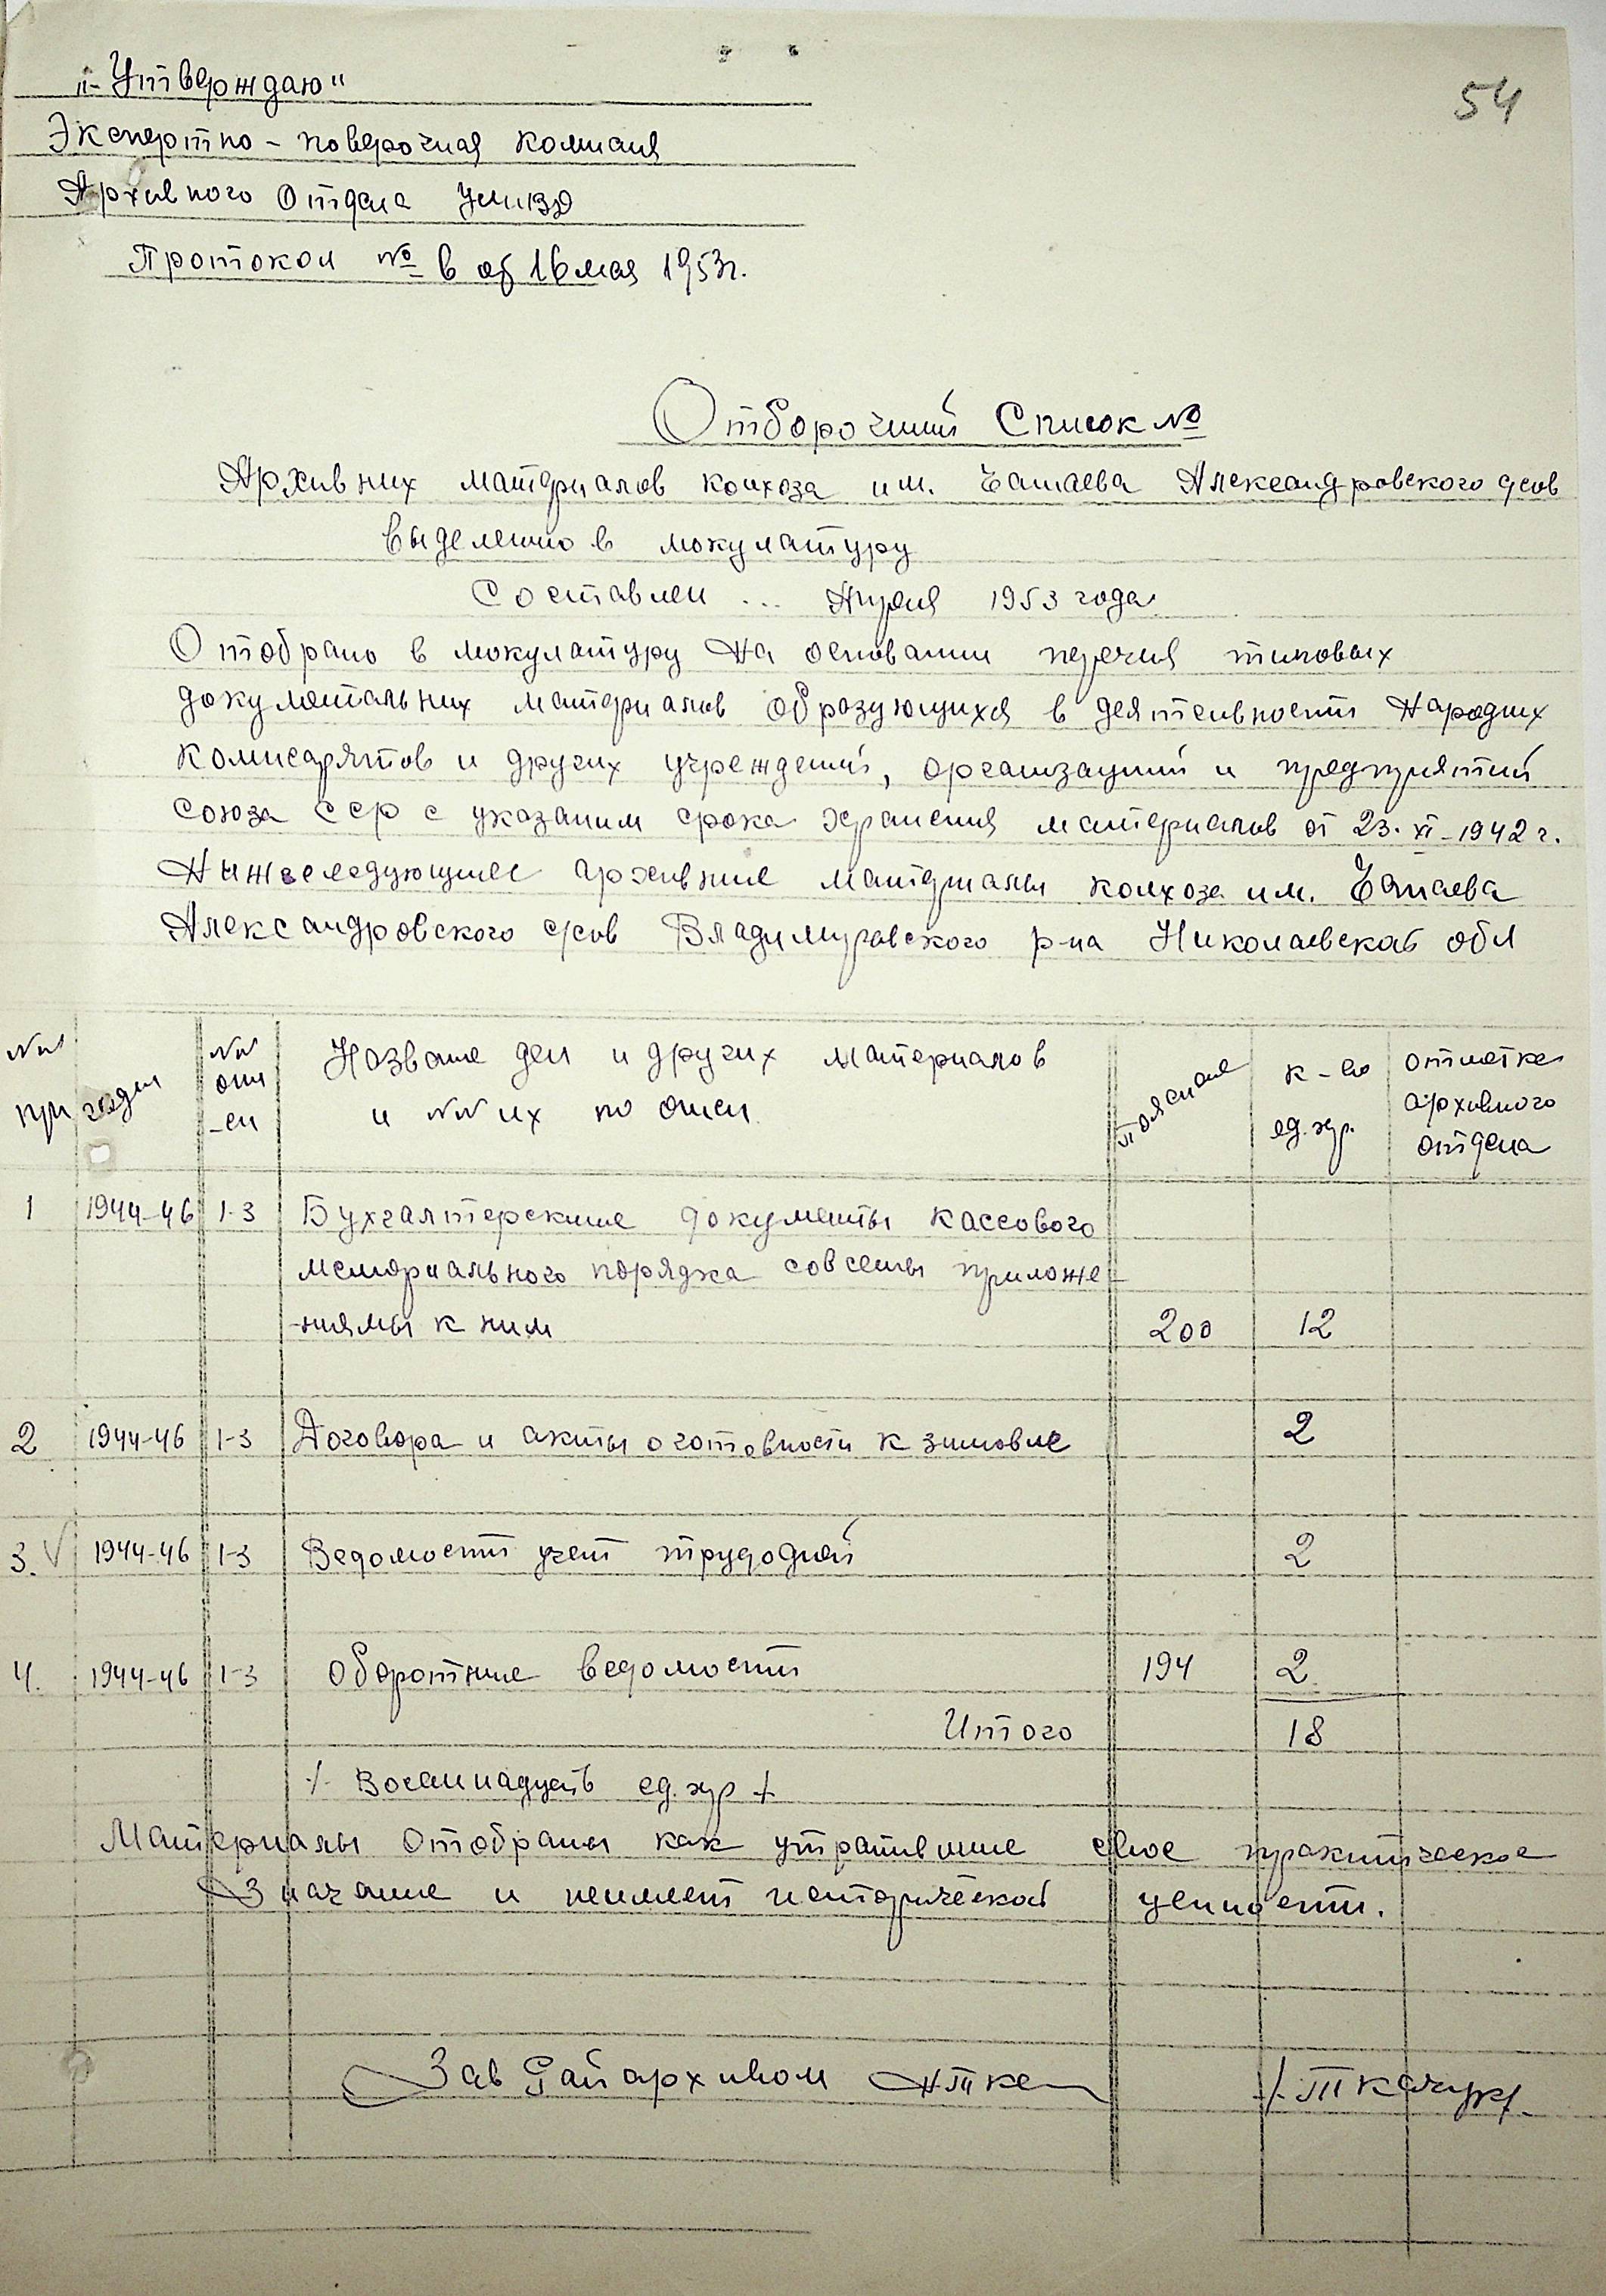 „Утверждаю"
54
Экспертно - поверочная комисия
Архивного Отдела УМВД
Протокол № 6 от 16 мая 1953г.
Отборочний Список №
Архивних материалов колхоза им. Чапаева Александровского с/сов
выделенно в мокулатуру
Составлен ... Апреля 1953 года
Отобрано в мокулатуру На основании перечня типовых
документальних материалов образующихся в деятельности Народних
Комисарятов и других учреждений, организаций и предприятий
союза ССР с указаним срока хранения материалов от 23. XI - 1942 г.
Нижеследующиее архивние материалы колхоза им. Чапаева
Александровского с/сов Владимировского р-на Николаевской обл
№№ пр годы №№ опи -си Название дел и других материалов и №№ их по описи Пояснание к-во ед. хр. отметка архивного отдела
1 1944-46 1-3 Бухгалтерские документы кассового
мемориального порядка совсемы приложе-
-ниямы к ним 200 12
2 1944-46 1-3 Договора и акты о готовности к зимовле 2
3. V 1944-46 1-3 Ведомости учет трудодней 2
4. 1944-46 1-3 Оборотние ведомости 194 2
Итого 18
/- Восамнадцять ед. хр -/
Материалы отобраны как утратившие свое практическое
Значание и неимеют исторической ценности.
Зав Райархивом /-Ткачук/-